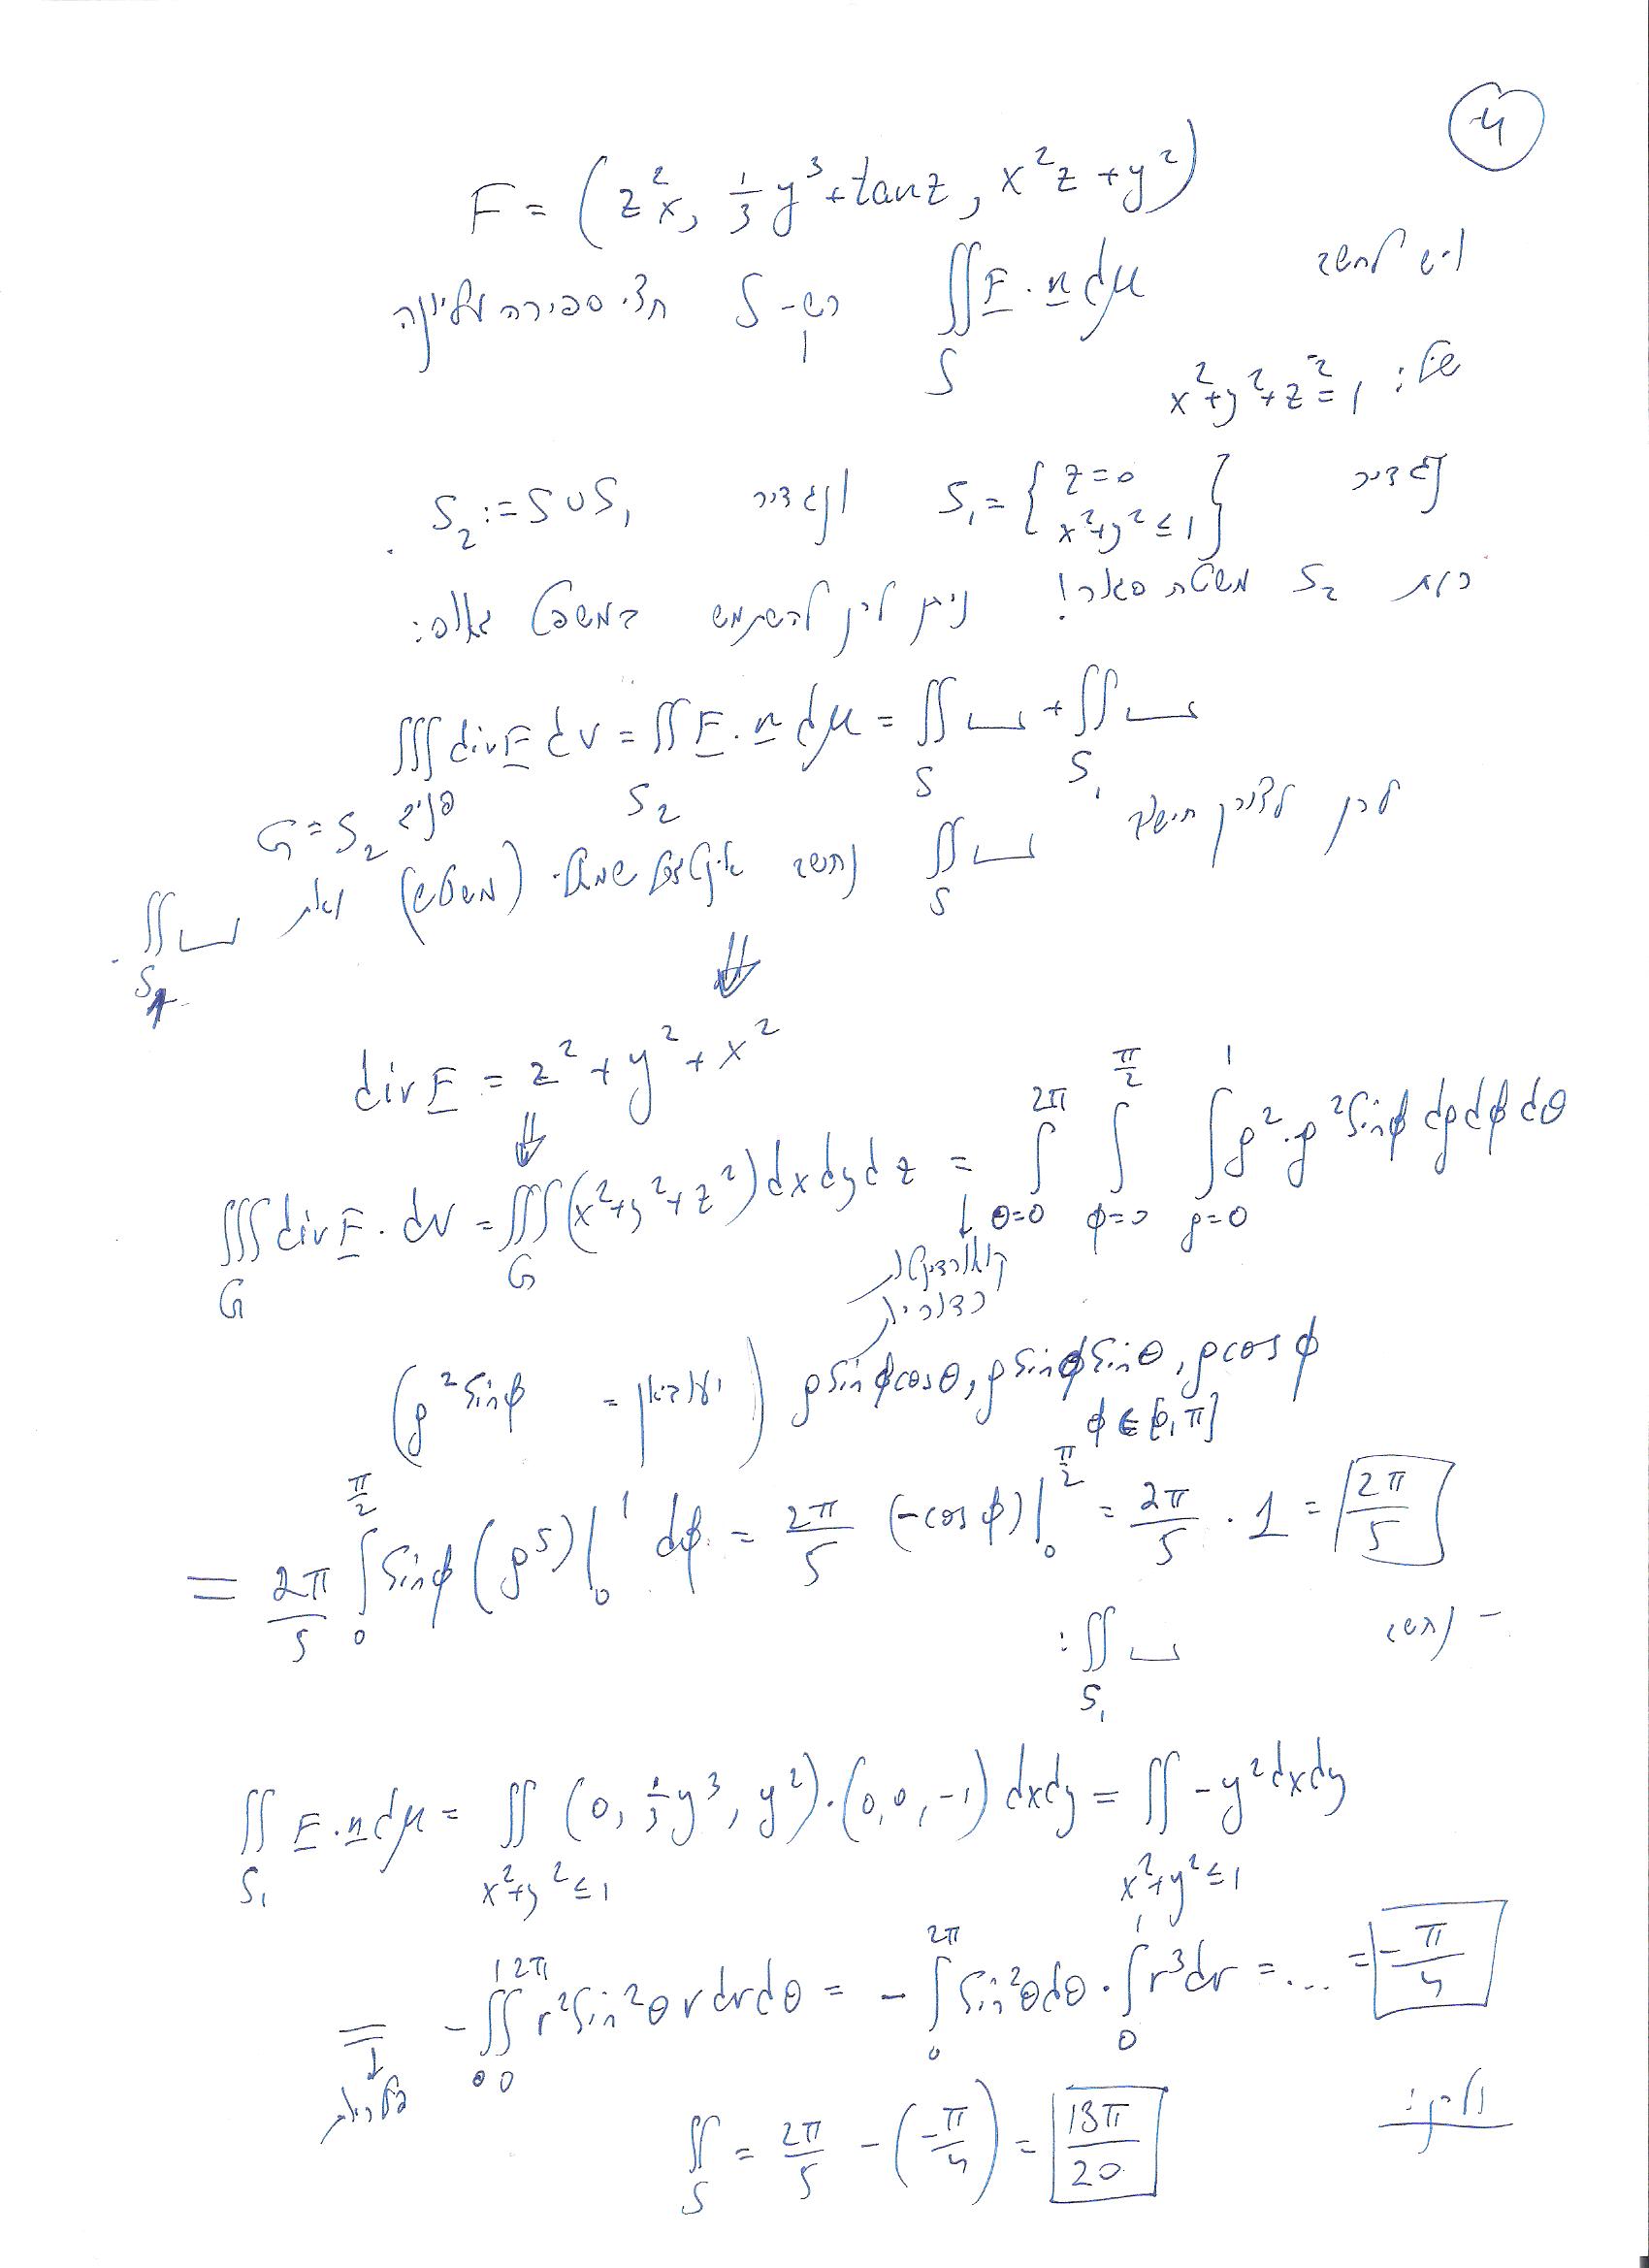 4
F = (z²x, ⅓y³+tanz, x²z+y²)
ויש לחשב ∬_S F·n dμ כש- S חצי ספירה עליונה
של: x²+y²+z²=1
נגדיר S₁ = { z=0, x²+y²≤1 } ונגדיר S₂ := S∪S₁.
כעת S₂ משטח סגור! ניתן לכן להשתמש במשפט גאוס:
∭ div F dv = ∬_{S₂} F·n dμ = ∬_S ⌴ + ∬_{S₁} ⌴
G = S₂ פנים
לכן לצורך חישוב ∬_S ⌴ נחשב אינטגרל שמאלי (משולש) ואת ∬_{S₁} ⌴.
⇓
div F = z²+y²+x²
⇓
∭_G div F · dv = ∭_G (x²+y²+z²)dxdydz = ∫_{θ=0}^{2π} ∫_{φ=0}^{π/2} ∫_{ρ=0}^{1} ρ²·ρ² sinφ dρdφdθ
↓ קואורדינטות
כדוריות
(ρ² sinφ = יעקוביאן) ρ sinφ cosθ, ρ sinφ sinθ, ρ cosφ
φ ∈ [0,π]
= 2π/5 ∫_0^{π/2} sinφ (ρ⁵)|_0^1 dφ = 2π/5 (-cosφ)|_0^{π/2} = 2π/5 · 1 = 2π/5
- נחשב ∬_{S₁} ⌴ :
∬_{S₁} F·n dμ = ∬_{x²+y²≤1} (0, ⅓y³, y²)·(0,0,-1) dxdy = ∬_{x²+y²≤1} -y² dxdy
= -∫_0^1∫_0^{2π} r² sin²θ r dr dθ = -∫_0^{2π} sin²θ dθ · ∫_0^1 r³ dr = ... = -π/4
↓ פולריות
ולכן:
∬_S = 2π/5 - (-π/4) = 13π/20